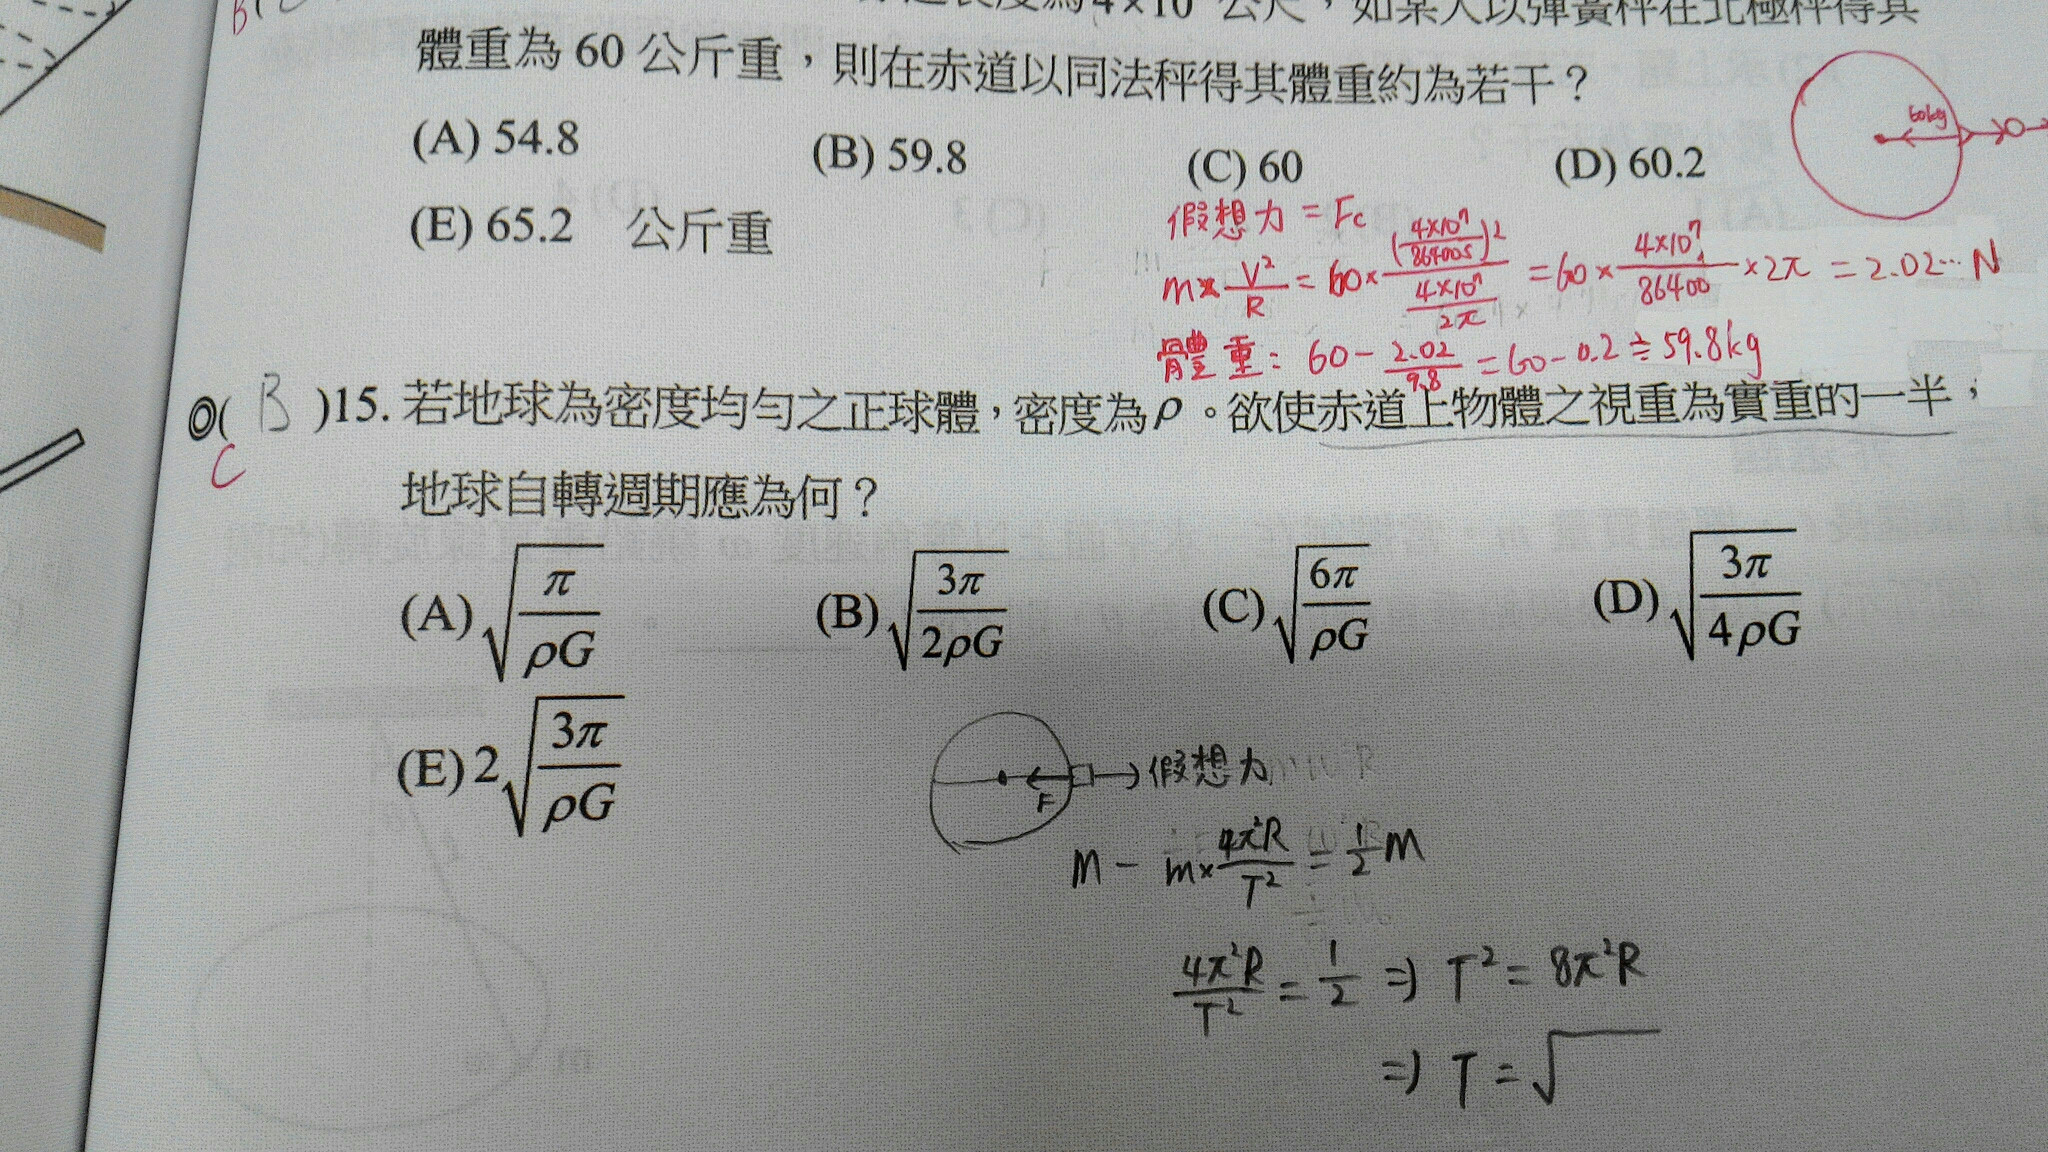 體重為 60 公斤重，則在赤道以同法秤得其體重約為若干？
(A) 54.8 (B) 59.8 (C) 60 (D) 60.2
(E) 65.2 公斤重
60kg
假想力 = Fc
m × V²/R = 60 × (4×10⁷/86400s)²/(4×10⁷/2π) = 60 × 4×10⁷/86400² × 2π = 2.02… N
體重：60 − 2.02/9.8 = 60 − 0.2 ≒ 59.8kg
◎( B )15. 若地球為密度均勻之正球體，密度為ρ。欲使赤道上物體之視重為實重的一半，
C
地球自轉週期應為何？
(A) √(π/ρG) (B) √(3π/2ρG) (C) √(6π/ρG) (D) √(3π/4ρG)
(E) 2√(3π/ρG)
F 假想力
m − m× 4π²R/T² = 1/2 m
4π²R/T² = 1/2 ⇒ T² = 8π²R
⇒ T = √